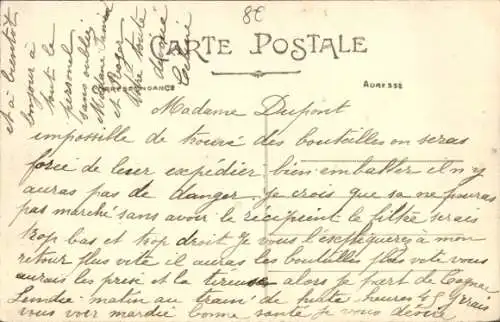 80
CARTE POSTALE
CORRESPONDANCE
ADRESSE
Madame Dupont
impossible de trouvé des bouteilles on serais
forcé de leur expédier bien emballer il n y
auras pas de danger. je crois que sa ne pouras
pas marché sans avoir le recipient le filtre serais
trop bas et trop droit Je vous l'esepliquerés à mon
retour plus vite il auras les bouteilles plus vite vous
aurais les prise et la tireuse alors je part de Cognac
Lundie matin au train de huite heures 45 j irais
vous voir mardie bonne santé je vous désire
et à bientot
bonjour à
tout le
personel
sans oublié
Madame
et Roger
votre toute
dévoué